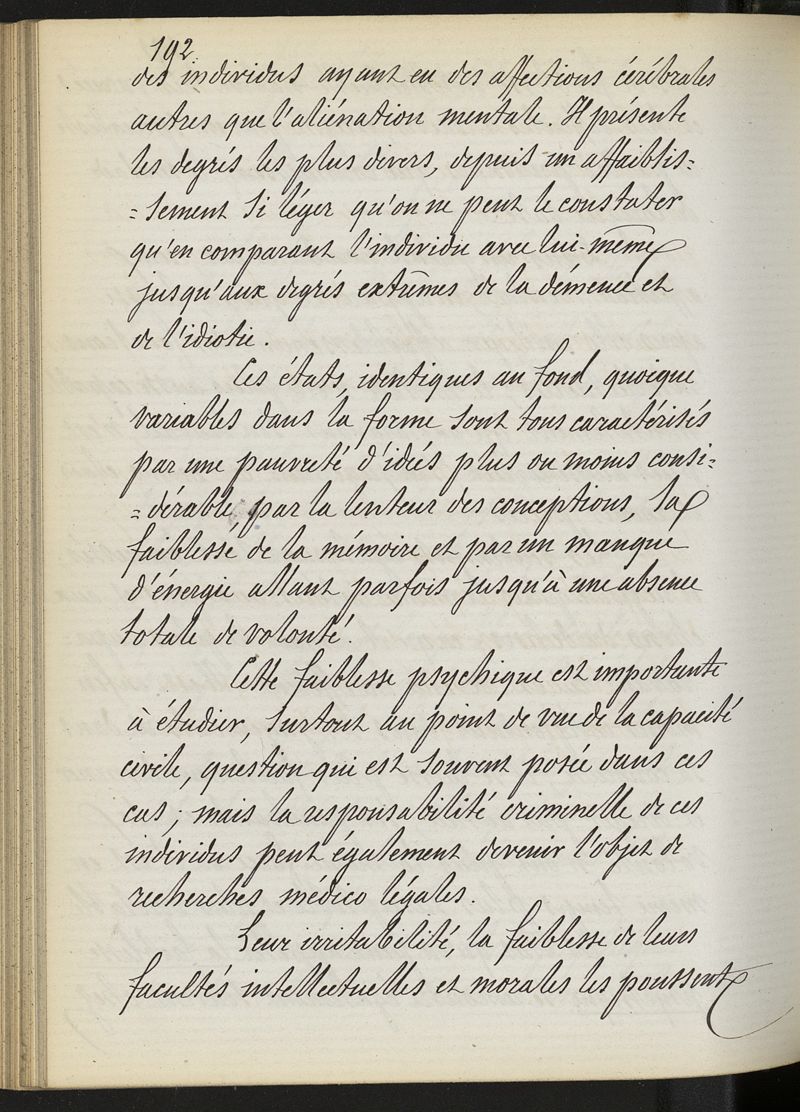 192
des individus ayant eu des affections cérébrales
autres que l'aliénation mentale. Il présente
les degrés les plus divers, depuis un affaiblis=
=sement si léger qu'on ne peut le constater
qu'en comparant l'individu avec lui-même
jusqu'aux degrés extrêmes de la démence et
de l'idiotie.
Ces états, identiques au fond, quoique
variables dans la forme sont tous caractérisés
par une pauvreté d'idées plus ou moins consi=
=dérable, par la lenteur des conceptions, la
faiblesse de la mémoire et par un manque
d'énergie allant parfois jusqu'à une absence
totale de volonté.
Cette faiblesse psychique est importante
à étudier, surtout au point de vue de la capacité
civile, question qui est souvent posée dans ces
cas ; mais la responsabilité criminelle de ces
individus peut également devenir l'objet de
recherches médico légales.
Leur irritabilité, la faiblesse de leurs
facultés intellectuelles et morales les poussent